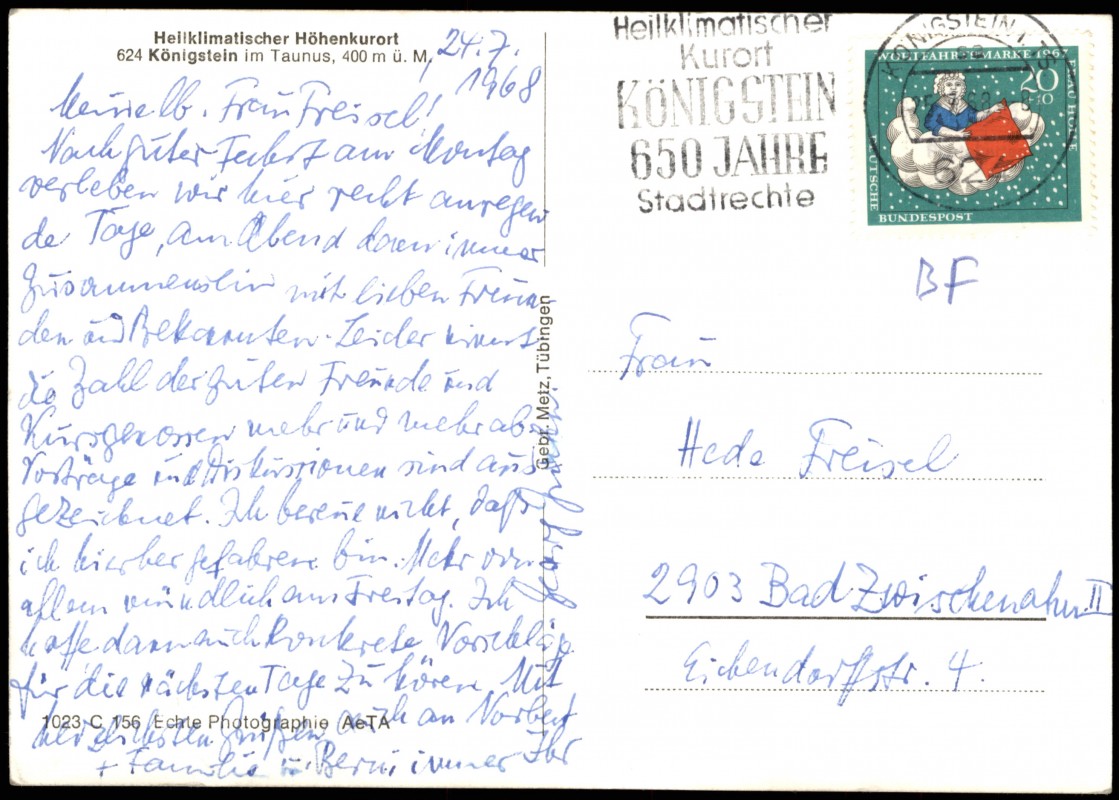 Heilklimatischer Höhenkurort
624 Königstein im Taunus, 400 m ü. M.
24.7.
1968
Meine lb. Frau Freisel!
Nach guter Fahrt am Montag
verleben wir hier recht anregen
de Tage, am Abend dann immer
Zusammensein mit lieben Freun
den und Bekannten. Leider nimmt
die Zahl der guten Freunde und
Kursgenossen mehr und mehr ab.
Vorträge und Diskussionen sind aus
gezeichnet. Ich bereue nicht, daß
ich hierher gefahren bin. Mehr von
allem mündlich am Freitag. Ich
hoffe dann auch konkrete Vorschläge
für die nächsten Tage zu hören. Mit
herzlichsten Grüßen auch an Norbert
+ Familie u. Berni immer Ihr
Georg
1023 C 156 Echte Photographie AeTA
Gebr. Metz, Tübingen
Heilklimatischer
Kurort
KÖNIGSTEIN
650 JAHRE
Stadtrechte
KÖNIGSTEIN
624
WOHLFAHRTSMARKE 1967
20
+10
FRAU HOLLE
DEUTSCHE
BUNDESPOST
BF
Frau
Hede Freisel
2903 Bad Zwischenahn II
Eichendorffstr. 4.